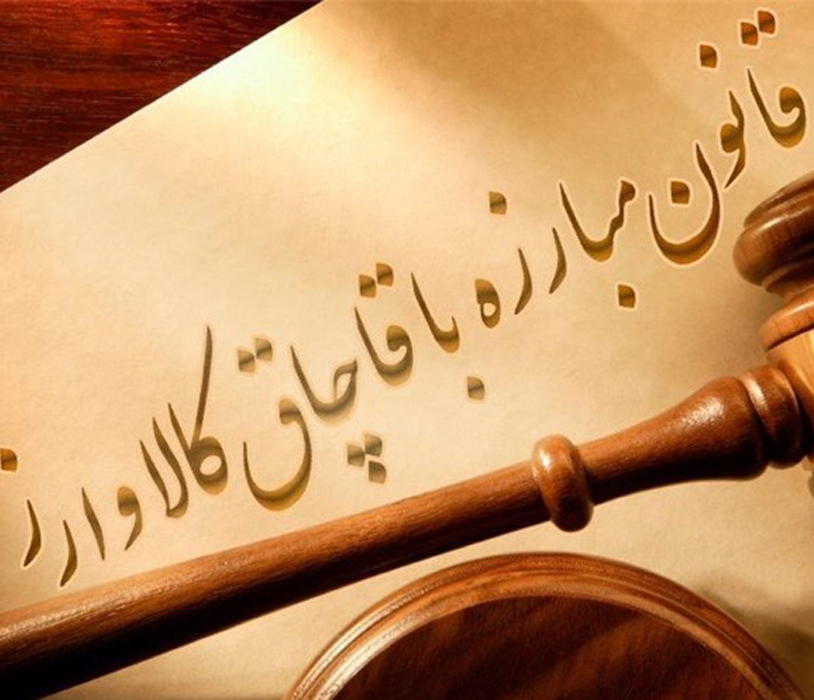 قانون مبارزه با قاچاق کالا و ارز